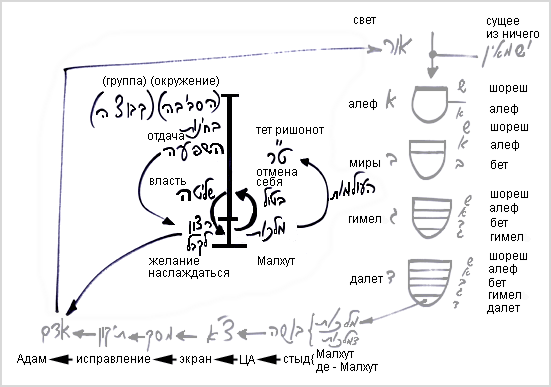 свет
сущее
из ничего
אור
יש מאין
(группа) (окружение)
(הסביבה) (קבוצה)
отдача
בחינות
השפעה
тет ришонот
ט"ר
власть
שליטה
отмена
себя
ביטול
העולמות
רצון
לקבל
מלכות
желание
наслаждаться
Малхут
алеф א
ש шореш
א алеф
миры ב
ש шореш
א алеф
ב бет
гимел ג
ש шореш
א алеф
ב бет
ג гимел
далет ד
ש шореш
א алеф
ב бет
ג гимел
ד далет
מלכות
דמלכות
אדם תיקון מסך צ"א בושה
Адам исправление экран ЦА стыд{ Малхут
де - Малхут